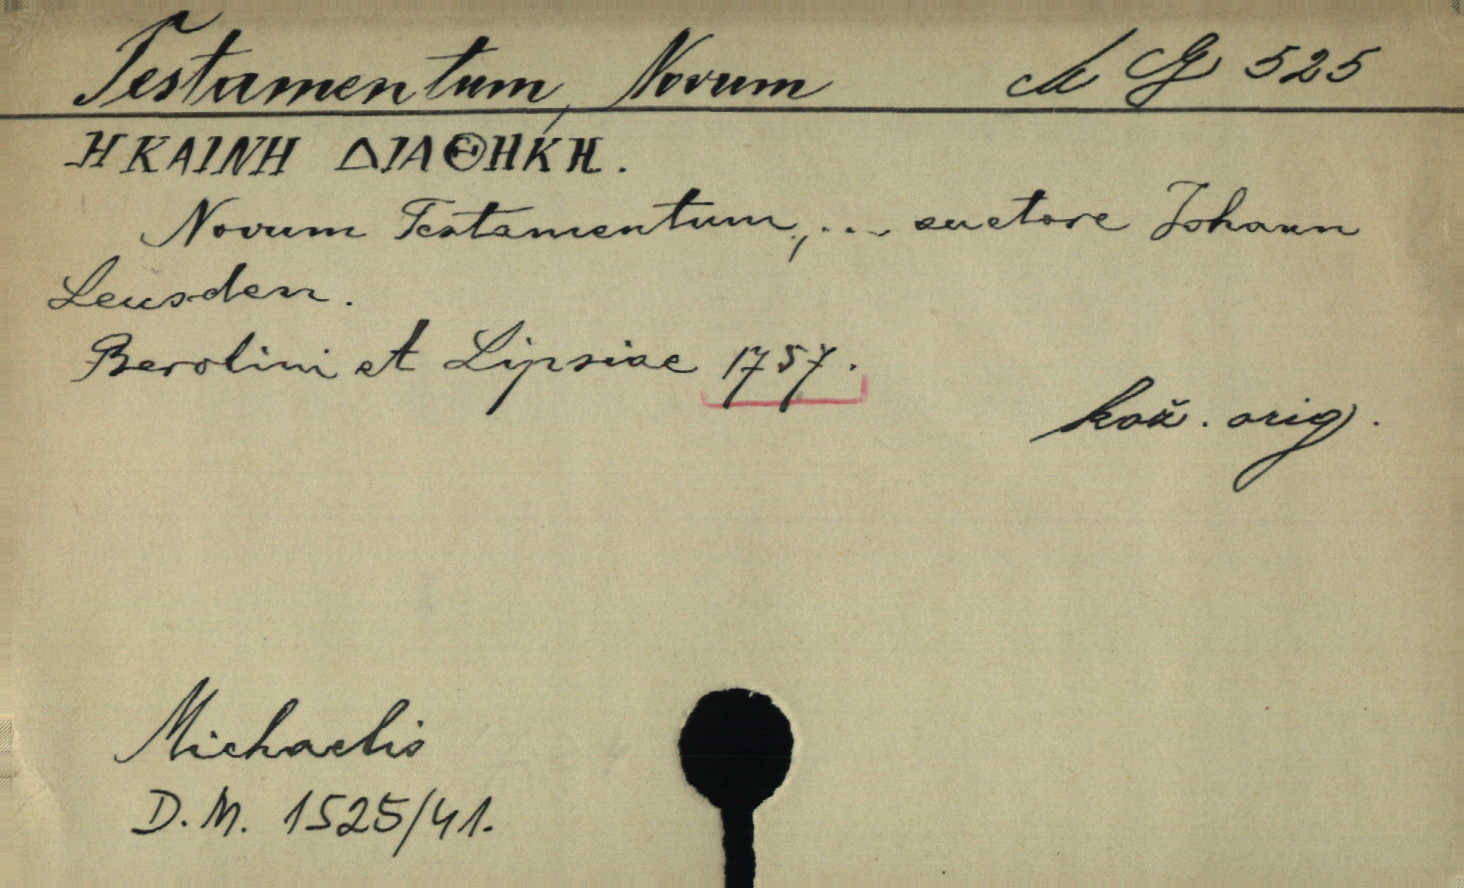 Testamentum, Novum M G 525
Η ΚΑΙΝΗ ΔΙΑΘΗΚΗ.
Novum Testamentum, ... auctore Johann
Leusden.
Berolini et Lipsiae 1757.
kož. orig.
Michaelis
D.M. 1525/41.